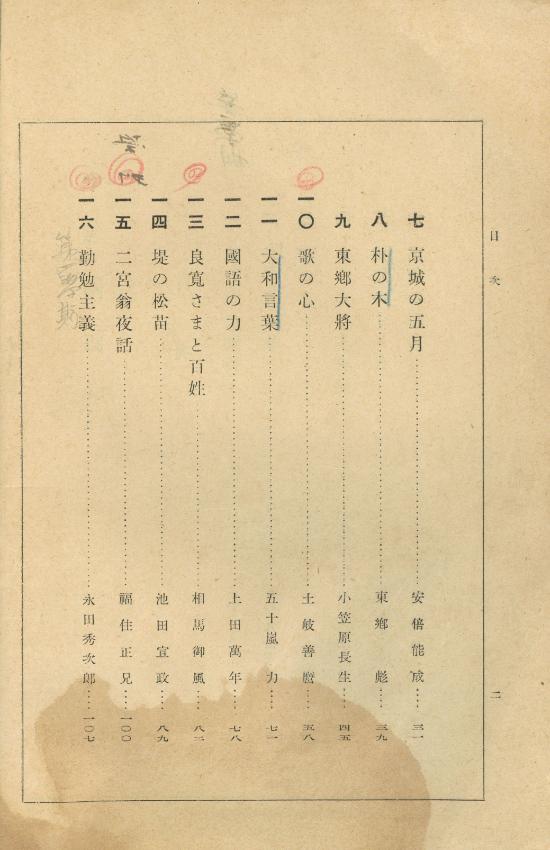 目次
二
七 京城の五月……安倍能成……三一
八 朴の木……東郷 彪……三九
九 東郷大將……小笠原長生……四五
一〇 歌の心……土岐善麿……五八
一一 大和言葉……五十嵐 力……七一
一二 國語の力……上田萬年……七八
一三 良寬さまと百姓……相馬御風……八二
一四 堤の松苗……池田宣政……八九
一五 二宮翁夜話……福住正兄……一〇〇
一六 勤勉主義……永田秀次郎……一〇七